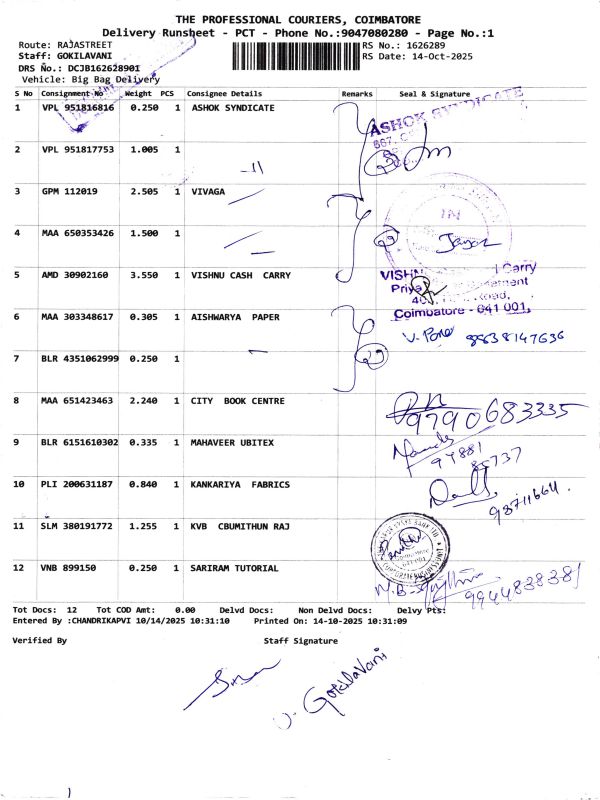 THE PROFESSIONAL COURIERS, COIMBATORE
Delivery Runsheet - PCT - Phone No.:9047080280 - Page No.:1
Route: RAJASTREET
RS No.: 1626289
Staff: GOKILAVANI
RS Date: 14-Oct-2025
DRS No.: DCJB162628901
Vehicle: Big Bag Delivery
S No Consignment No Weight PCS Consignee Details Remarks Seal & Signature
1 VPL 951816816 0.250 1 ASHOK SYNDICATE
ASHOK SYNDICATE
2 VPL 951817753 1.005 1
3 GPM 112019 2.505 1 VIVAGA
4 MAA 650353426 1.500 1
5 AMD 30902160 3.550 1 VISHNU CASH CARRY
Carry
Road,
Coimbatore - 641 001.
6 MAA 303348617 0.305 1 AISHWARYA PAPER
98638147636
7 BLR 4351062999 0.250 1
8 MAA 651423463 2.240 1 CITY BOOK CENTRE
9790683335
9 BLR 6151610302 0.335 1 MAHAVEER UBITEX
10 PLI 200631187 0.840 1 KANKARIYA FABRICS
11 SLM 380191772 1.255 1 KVB CBUMITHUN RAJ
12 VNB 899150 0.250 1 SARIRAM TUTORIAL
9944838381
Tot Docs: 12 Tot COD Amt: 0.00 Delvd Docs: Non Delvd Docs: Delvy Pts:
Entered By :CHANDRIKAPVI 10/14/2025 10:31:10 Printed On: 14-10-2025 10:31:09
Verified By Staff Signature
Gokilavani